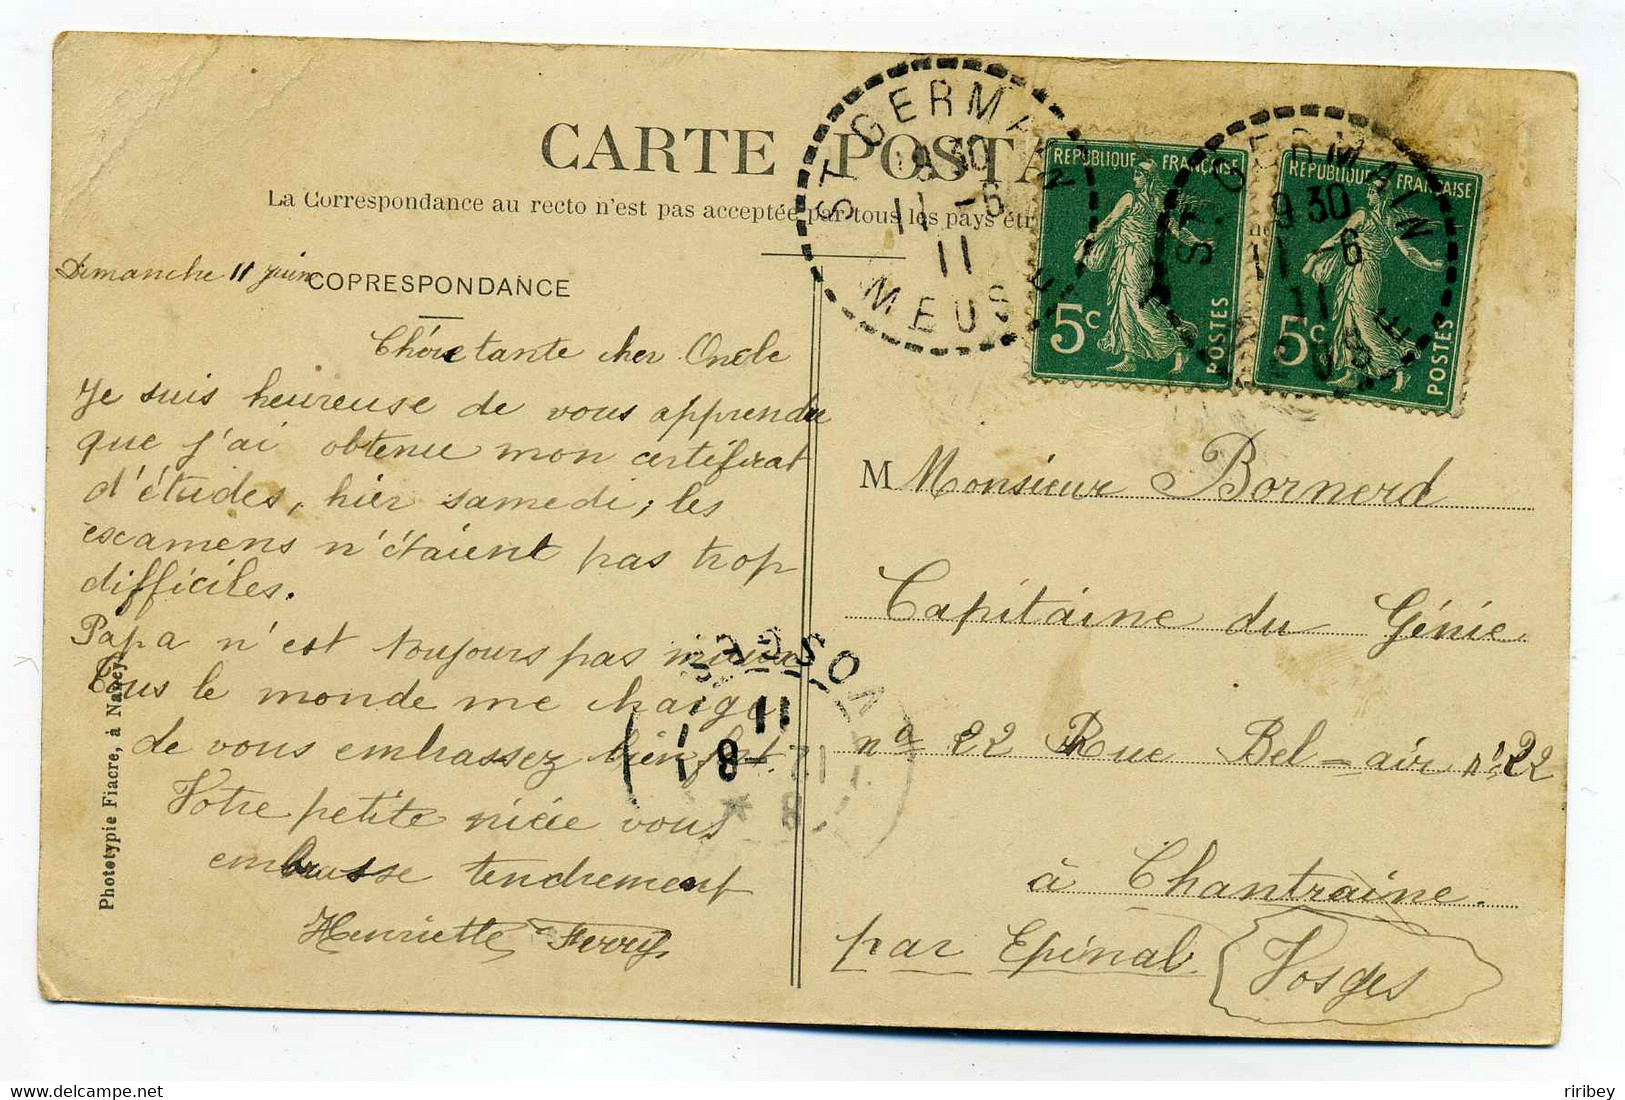 CARTE POSTA
La Correspondance au recto n'est pas acceptée par tous les pays étr
ST GERMA
9 30
11 -6
11
MEUSE
REPUBLIQUE FRANÇAISE
5c
POSTES
ST. GERMAIN
9 30
11 -6
11
REPUBLIQUE FRANÇAISE
5c
POSTES
Dimanche 11 juin
CORRESPONDANCE
Chère tante cher Oncle
Je suis heureuse de vous apprendre
que j'ai obtenue mon certificat
d'études, hier samedi; les
escamens n'étaient pas trop
difficiles.
Papa n'est toujours pas mieux
Tous le monde me charge
de vous embrassez bien fort.
Votre petite nièce vous
embrasse tendrement
Henriette Ferry
VOSGES
11
Phototypie Fiacre, à Nancy
M Monsieur Bornerd
Capitaine du Génie
no 22 Rue Bel-air no 22
à Chantraine.
par Epinal Vosges
riribey